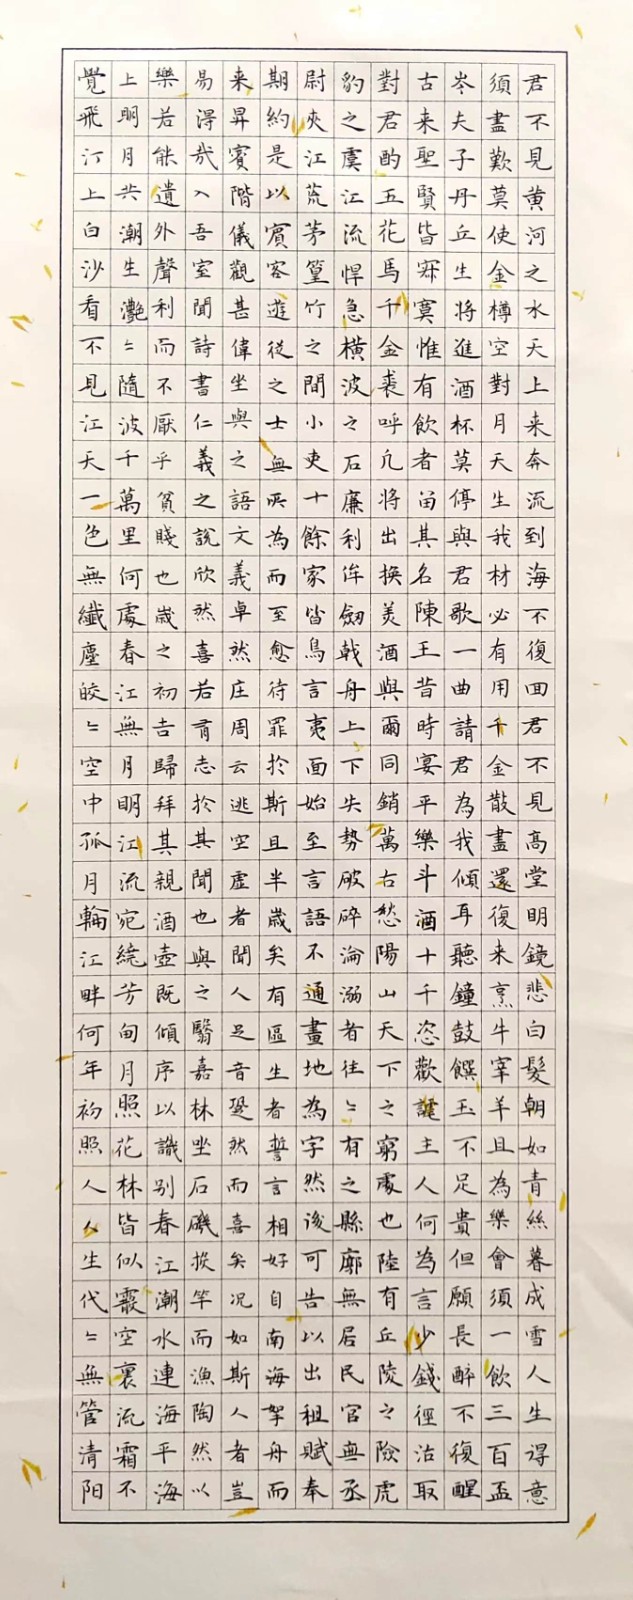 君不見黄河之水天上来奔流到海不復回君不見高堂明鏡悲白髮朝如青絲暮成雪人生得意
須盡歡莫使金樽空對月天生我材必有用千金散盡還復来烹牛宰羊且為樂會須一飲三百盃
岑夫子丹丘生将進酒杯莫停與君歌一曲請君為我傾耳聽鐘鼓饌玉不足貴但願長醉不復醒
古来聖賢皆寂寞惟有飲者留其名陳王昔時宴平樂斗酒十千恣歡謔主人何為言少錢徑沽取
對君酌五花馬千金裘呼兒将出換美酒與爾同銷萬古愁陽山天下之窮處也陸有丘陵之險虎
豹之虞江流悍急横波之石廉利侔劍戟舟上下失勢破碎淪溺者往〻有之縣廓無居民官無丞
尉夾江荒茅篁竹之間小吏十餘家皆鳥言夷面始至言語不通畫地為字然後可告以出租賦奉
期約是以賓客遊從之士無所為而至愈待罪於斯且半歲矣有區生者誓言相好自南海挐舟而
来昇賓階儀觀甚偉坐與之語文義卓然庄周云逃空虛者聞人足音跫然而喜矣况如斯人者豈
易得哉入吾室聞詩書仁義之說欣然喜若有志於其聞也與之翳嘉林坐石磯投竿而漁陶然以
樂若能遺外聲利而不厭乎貧賤也歲之初吉歸拜其親酒壺既傾序以識別春江潮水連海平海
上明月共潮生灧〻隨波千萬里何處春江無月明江流宛繞芳甸月照花林皆似霰空裏流霜不
覺飛汀上白沙看不見江天一色無纖塵皎〻空中孤月輪江畔何年初照人人生代〻無管清阳